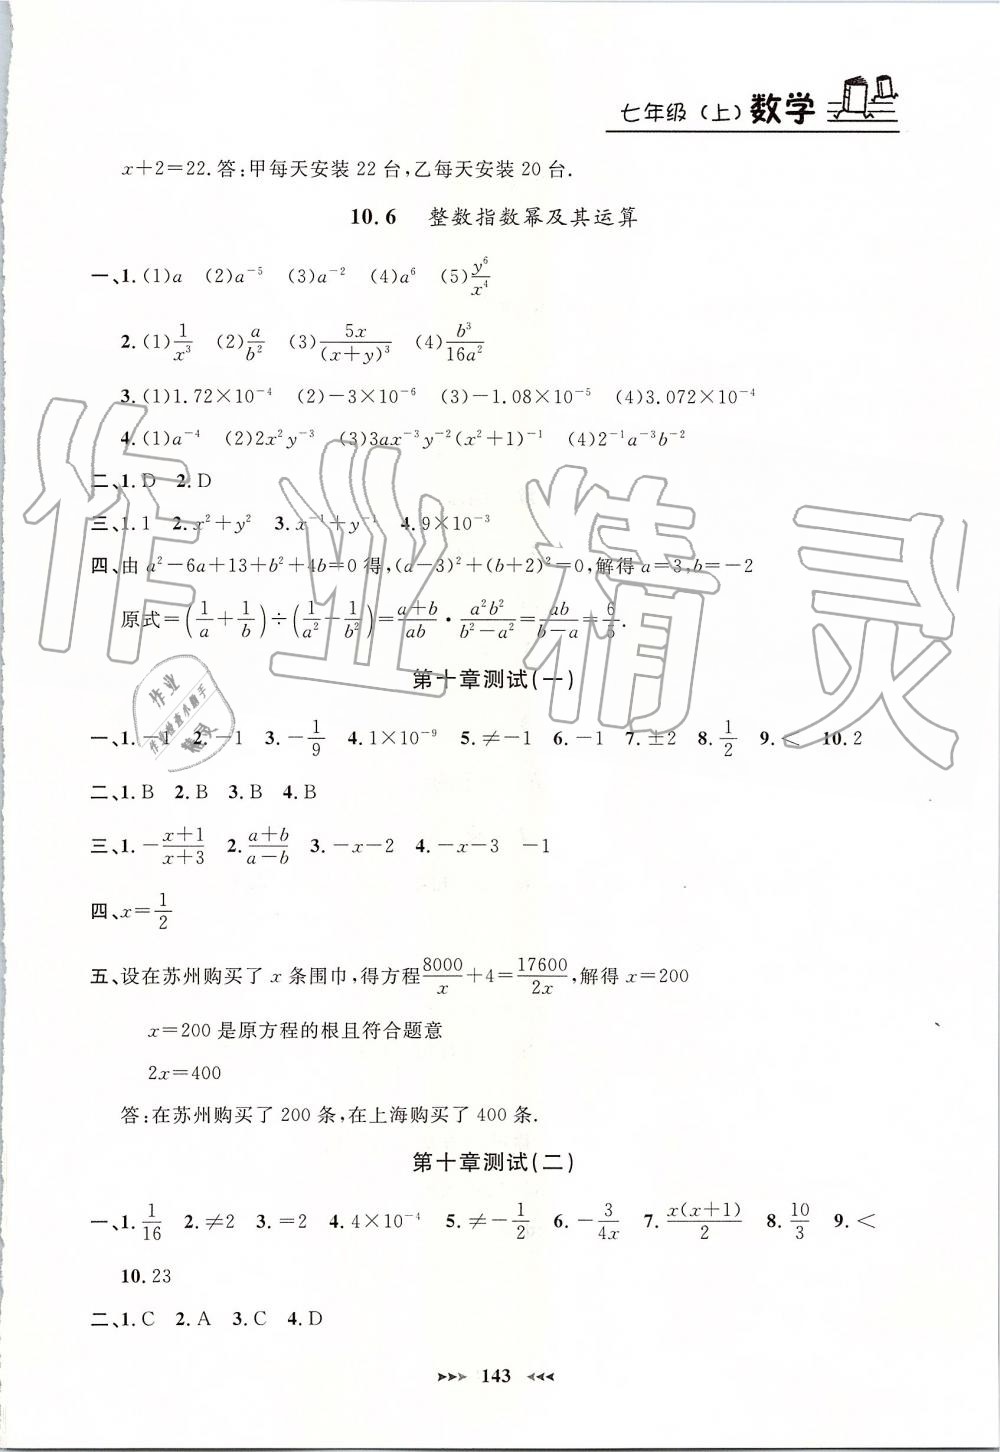 七年级（上）数学
x+2=22.答:甲每天安装 22 台,乙每天安装 20 台.
10.6 整数指数幂及其运算
一、1.(1)a (2)a⁻⁵ (3)a⁻² (4)a⁶ (5)y⁶/x⁴
2.(1)1/x³ (2)a/b² (3)5x/(x+y)³ (4)b³/16a²
3.(1)1.72×10⁻⁴ (2)-3×10⁻⁶ (3)-1.08×10⁻⁵ (4)3.072×10⁻⁴
4.(1)a⁻⁴ (2)2x²y⁻³ (3)3ax⁻³y⁻²(x²+1)⁻¹ (4)2⁻¹a⁻³b⁻²
二、1.D 2.D
三、1.1 2.x²+y² 3.x⁻¹+y⁻¹ 4.9×10⁻³
四、由 a²-6a+13+b²+4b=0 得,(a-3)²+(b+2)²=0,解得 a=3,b=-2
原式=(1/a+1/b)÷(1/a²-1/b²)=(a+b)/ab·a²b²/(b²-a²)=ab/(b-a)=6/5.
第十章测试(一)
一、1.-1 2.-1 3.-1/9 4.1×10⁻⁹ 5.≠-1 6.-1 7.±2 8.1/2 9.< 10.2
二、1.B 2.B 3.B 4.B
三、1.-(x+1)/(x+3) 2.(a+b)/(a-b) 3.-x-2 4.-x-3 -1
四、x=1/2
五、设在苏州购买了 x 条围巾,得方程8000/x+4=17600/2x,解得 x=200
x=200 是原方程的根且符合题意
2x=400
答:在苏州购买了 200 条,在上海购买了 400 条.
第十章测试(二)
一、1.1/16 2.≠2 3.=2 4.4×10⁻⁴ 5.≠-1/2 6.-3/4x 7.x(x+1)/2 8.10/3 9.<
10.23
二、1.C 2.A 3.C 4.D
143
作业精灵
作业
作业检查小助手
精灵